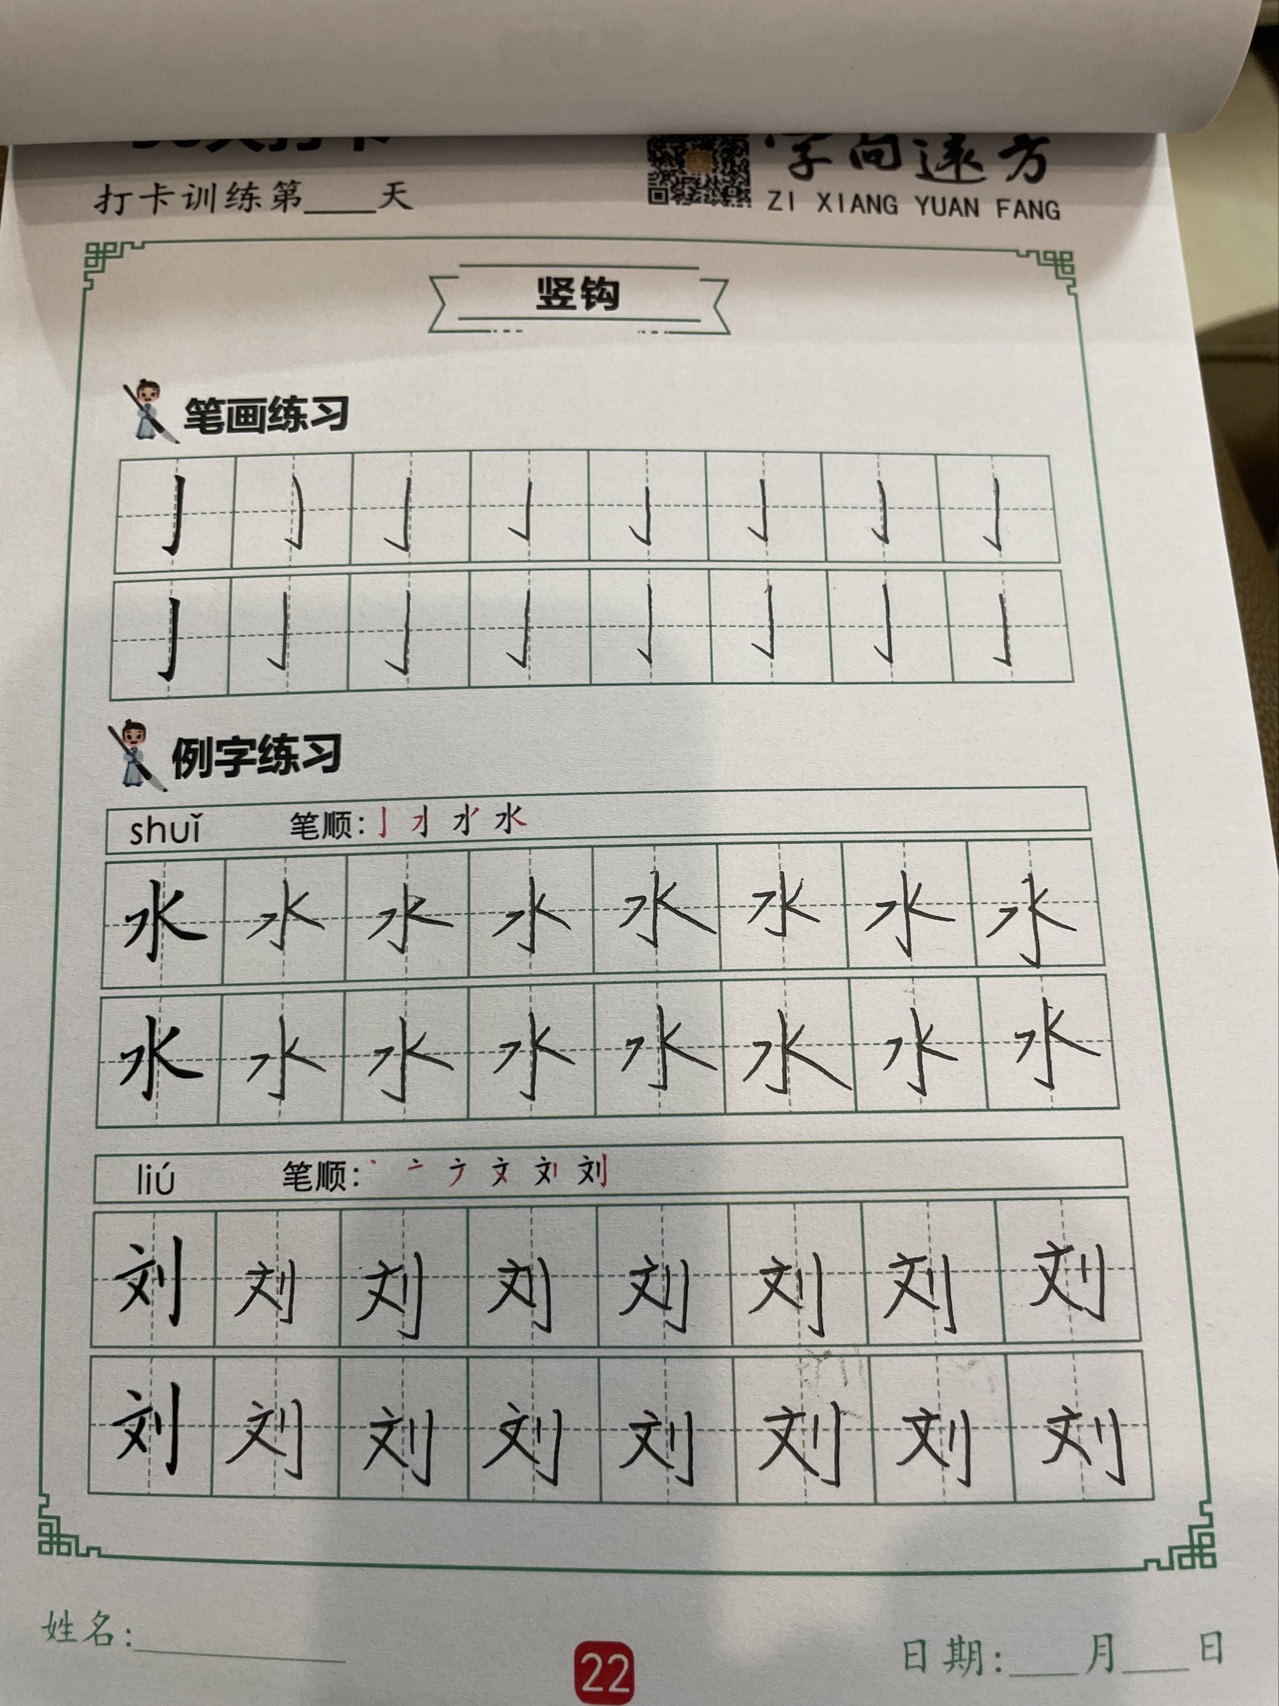 打卡训练第____天
字向远方
ZI XIANG YUAN FANG
竖钩
笔画练习
亅 亅 亅 亅 亅 亅 亅 亅
亅 亅 亅 亅 亅 亅 亅 亅
例字练习
shuǐ 笔顺: 水
水 水 水 水 水 水 水 水
水 水 水 水 水 水 水 水
liú 笔顺: 丶 亠 ナ 文 刘 刘
刘 刘 刘 刘 刘 刘 刘 刘
刘 刘 刘 刘 刘 刘 刘 刘
姓名:____________
22
日期:____月____日